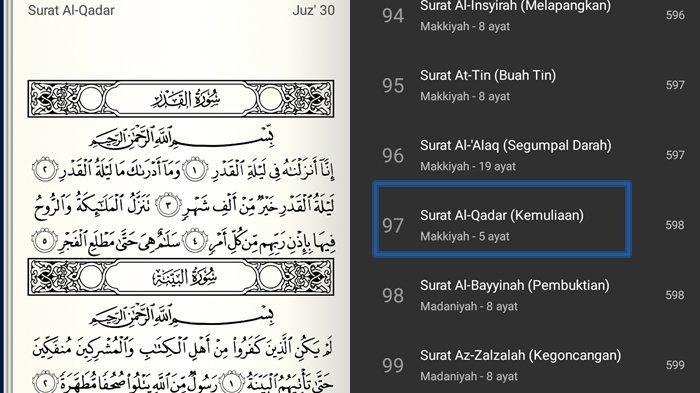 Surat Al-Qadar
Juz' 30
سُورَةُ الْقَدْرِ
بِسْمِ اللَّهِ الرَّحْمَٰنِ الرَّحِيمِ
إِنَّا أَنزَلْنَاهُ فِي لَيْلَةِ الْقَدْرِ ١ وَمَا أَدْرَاكَ مَا لَيْلَةُ الْقَدْرِ ٢
لَيْلَةُ الْقَدْرِ خَيْرٌ مِّنْ أَلْفِ شَهْرٍ ٣ تَنَزَّلُ الْمَلَائِكَةُ وَالرُّوحُ
فِيهَا بِإِذْنِ رَبِّهِم مِّن كُلِّ أَمْرٍ ٤ سَلَامٌ هِيَ حَتَّىٰ مَطْلَعِ الْفَجْرِ ٥
سُورَةُ الْبَيِّنَةِ
بِسْمِ اللَّهِ الرَّحْمَٰنِ الرَّحِيمِ
لَمْ يَكُنِ الَّذِينَ كَفَرُوا مِنْ أَهْلِ الْكِتَابِ وَالْمُشْرِكِينَ مُنفَكِّينَ
حَتَّىٰ تَأْتِيَهُمُ الْبَيِّنَةُ ١ رَسُولٌ مِّنَ اللَّهِ يَتْلُو صُحُفًا مُّطَهَّرَةً ٢
94 Surat Al-Insyirah (Melapangkan) 596
Makkiyah - 8 ayat
95 Surat At-Tin (Buah Tin) 597
Makkiyah - 8 ayat
96 Surat Al-'Alaq (Segumpal Darah) 597
Makkiyah - 19 ayat
97 Surat Al-Qadar (Kemuliaan) 598
Makkiyah - 5 ayat
98 Surat Al-Bayyinah (Pembuktian) 598
Madaniyah - 8 ayat
99 Surat Az-Zalzalah (Kegoncangan) 599
Madaniyah - 8 ayat